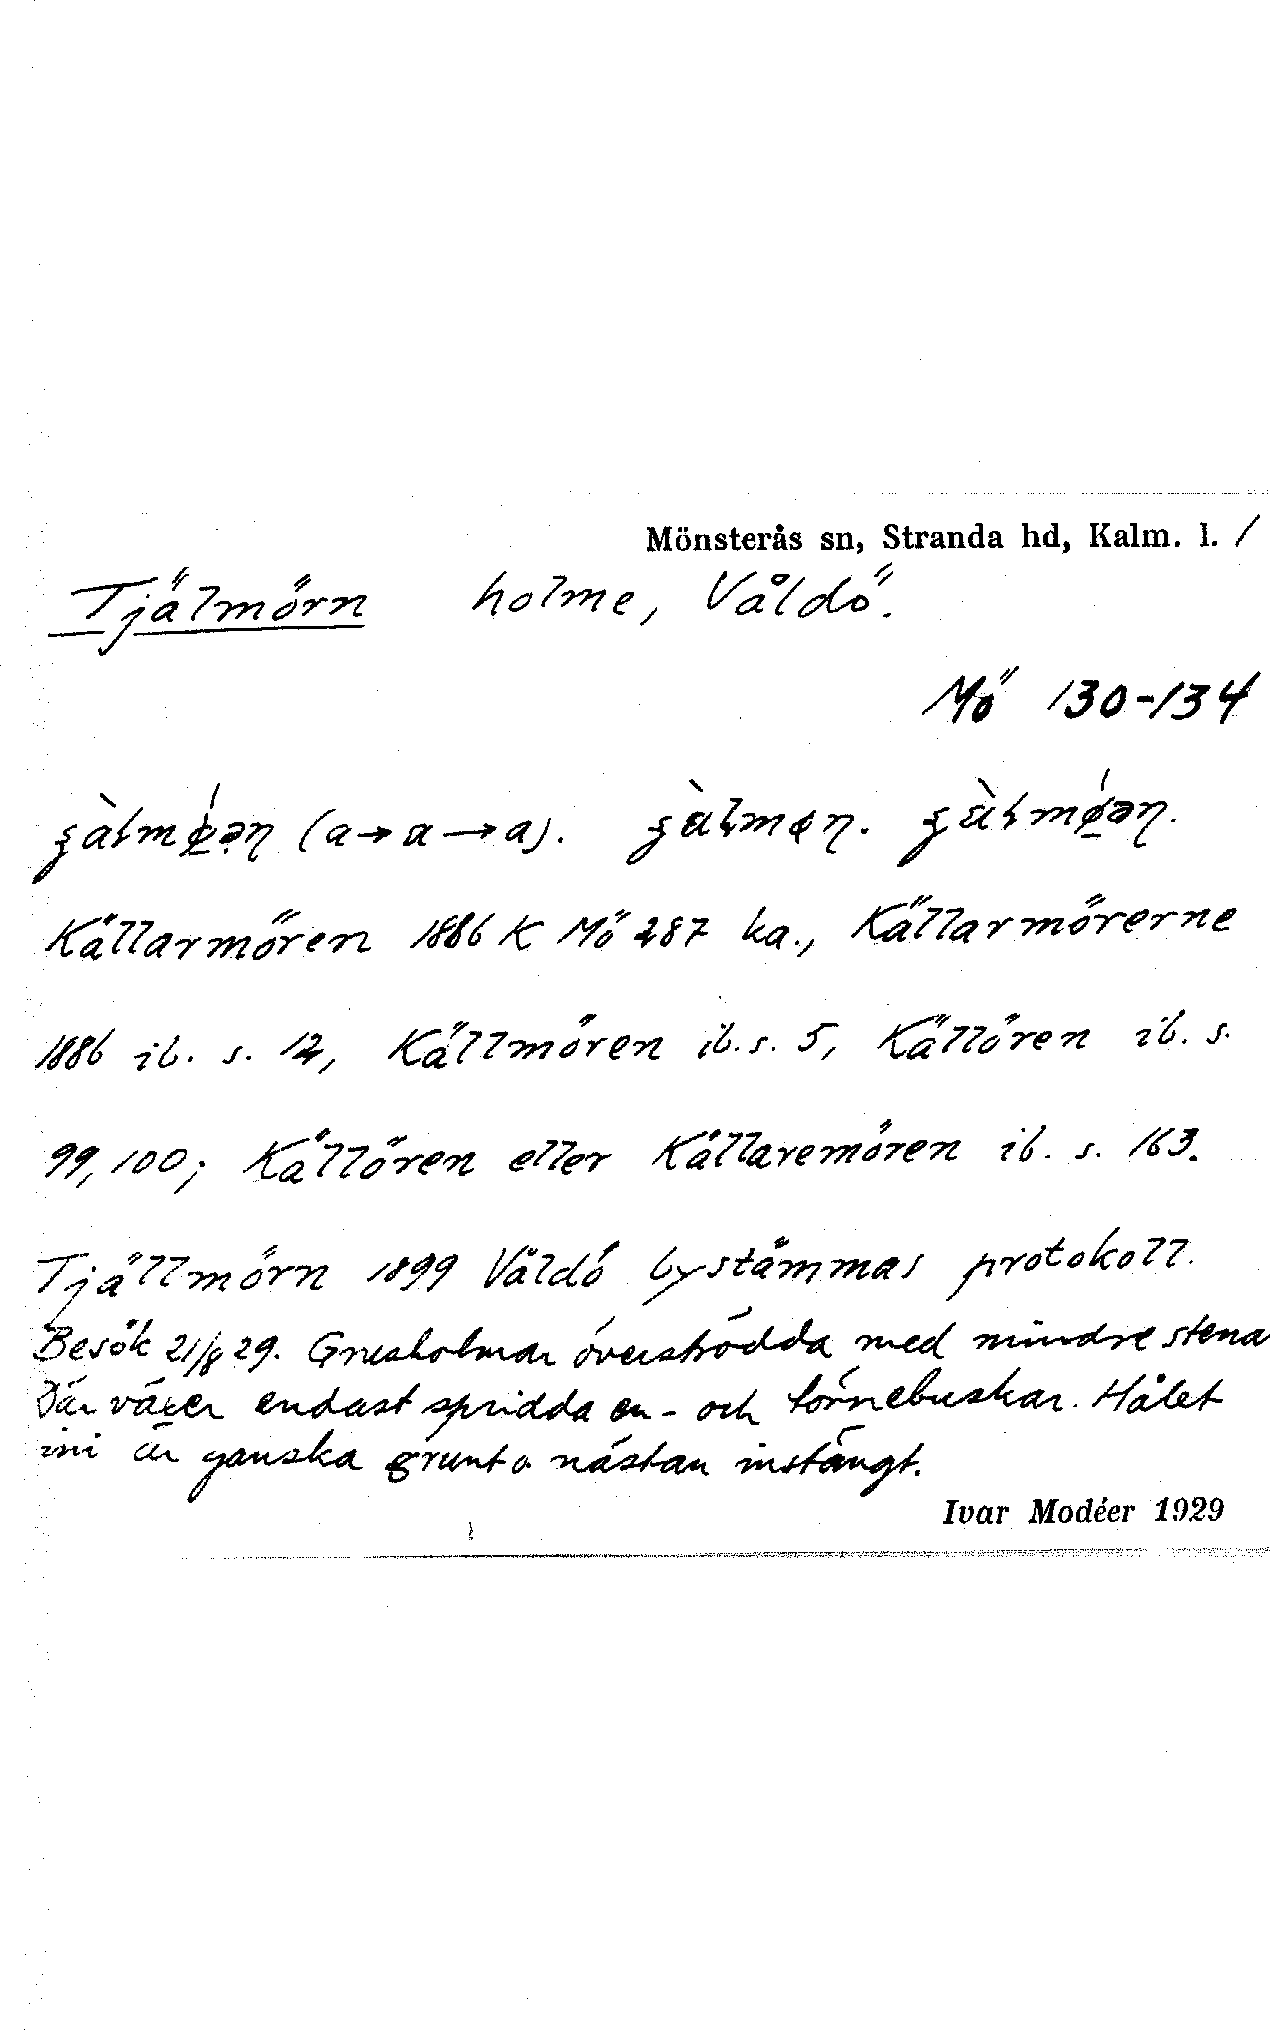 Mönsterås sn, Stranda hd, Kalm. l. /
Tjälmörn holme, Våldö.
Mö 130-134
(a→ɑ→a).
Källarmören 1886 K Mö 287 ka., Källarmörerne
1886 ib. s. 12, Källmören ib. s. 5, Källören ib. s.
99, 100; Källören eller Källaremören ib. s. 163.
Tjällmörn 1899 Våldö bystämmas protokoll.
Besök 21/8 29. Grusholmar överströdda med mindre stena
Där växer endast spridda en- och törnebuskar. Hålet
ini är ganska grunt o nästan instängt.
Ivar Modéer 1929